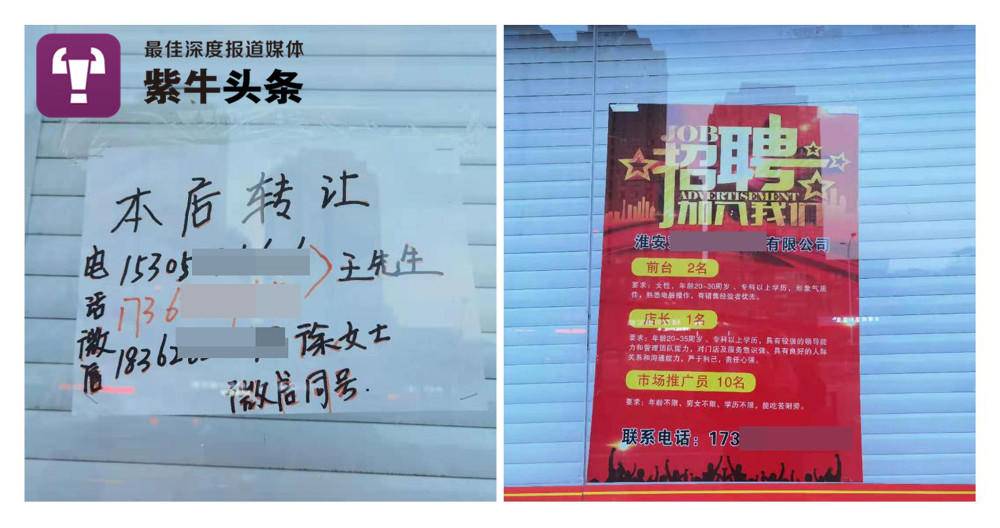 最佳深度报道媒体
紫牛头条
本店转让
电话 15305 王先生
1736
微信 18362 徐女士
微信同号.
JOB
招聘
ADVERTISEMENT
加入我们
淮安 有限公司
前台 2名
要求：女性，年龄20-30周岁、专科以上学历，形象气质
佳，熟悉电脑操作，有销售经验者优先。
店长 1名
要求：年龄20-35周岁、专科以上学历，具有较强的领导能
力和管理团队能力，对门店及服务意识强，具有良好的人际
关系和沟通能力，严于利己，责任心强。
市场推广员 10名
要求：年龄不限、男女不限、学历不限，能吃苦耐劳。
联系电话：173